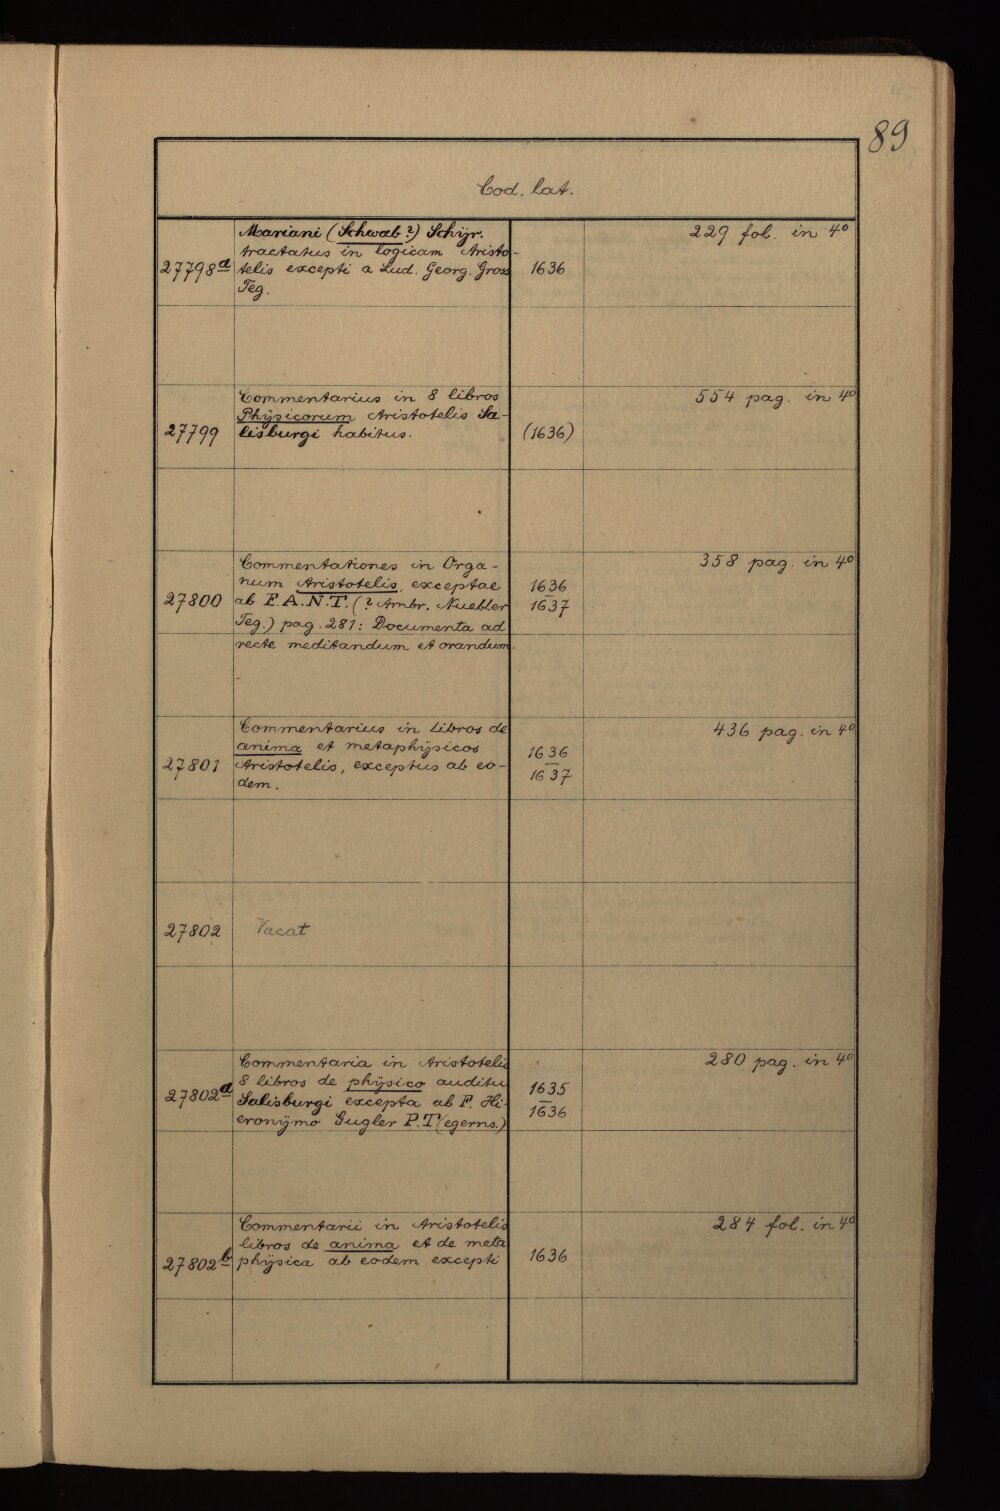 89
Cod. lat.
Mariani (Schwab?) Schyr. 229 fol. in 4°
tractatus in logicam Aristo-
27798a telis excepti a Lud. Georg. Gross 1636
Teg.
Commentarius in 8 libros 554 pag. in 4°
Physicorum Aristotelis Sa-
27799 lisburgi habitus. (1636)
Commentationes in Orga- 358 pag. in 4°
num Aristotelis, exceptae 1636
27800 ab F. A. N. T. (? Ambr. Nuebler 1637
Teg.) pag. 281: Documenta ad
recte meditandum et orandum.
Commentarius in libros de 436 pag. in 4°
anima et metaphysicos 1636
27801 Aristotelis, exceptus ab eo- 1637
dem.
27802 Vacat
Commentaria in Aristotelis 280 pag. in 4°
8 libros de physico auditu 1635
27802a Salisburgi excepta ab F. Hi- 1636
eronymo Gugler P. T(egerns.)
Commentarii in Aristotelis 284 fol. in 4°
libros de anima et de meta
27802b physica ab eodem excepti 1636